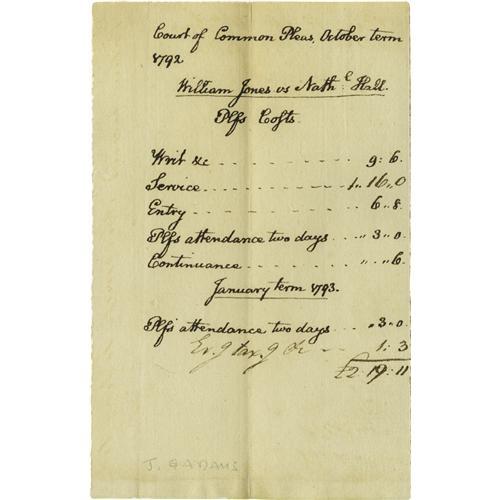 Court of Common Pleas, October term
1792
William Jones vs Nath.l Hall.
Plfs Costs
Writ &c - - - - - - 9: 6.
Service - - - - - - 1,, 16,, 0
Entry - - - - - - 6,, 8.
Plfs attendance two days - - - ,, 3,, 0.
Continuance - - - - - - ,, ,, 6.
January term 1793.
Plfs attendance two days - - - ,, 3,, 0.
1: 3
£2: 19: 11
J. Q ADAMS